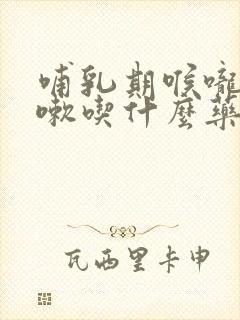 哺乳期喉嚨
嗽喫什麼藥
瓦西里卡申